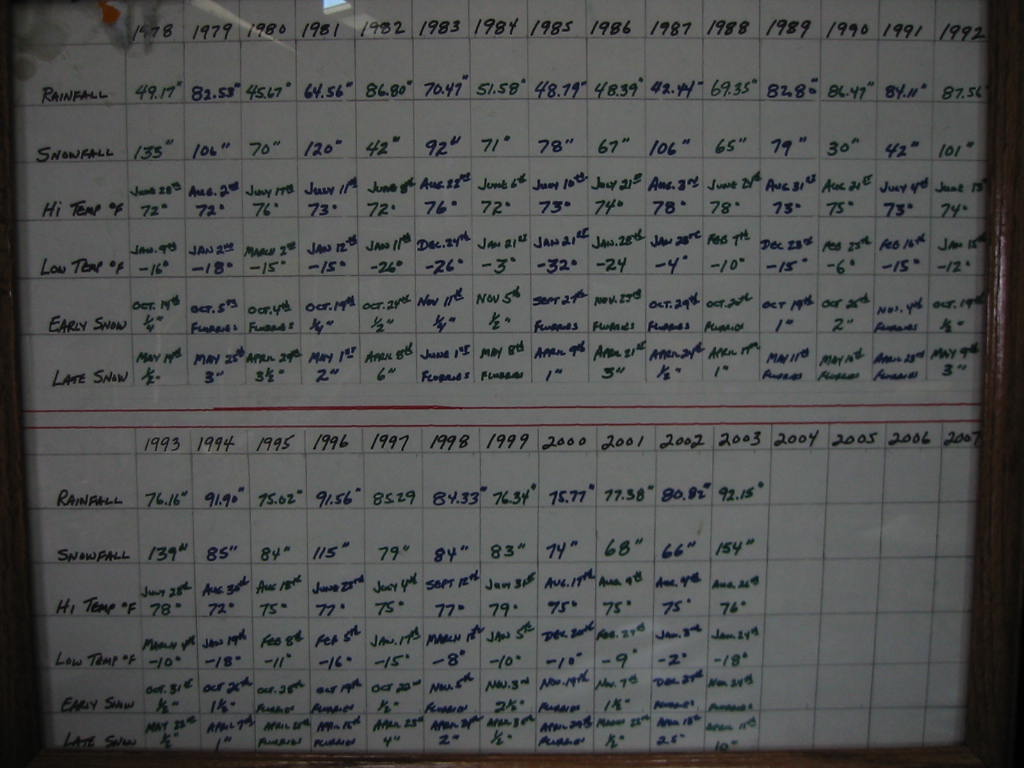 1978 1979 1980 1981 1982 1983 1984 1985 1986 1987 1988 1989 1990 1991 1992
RAINFALL 49.17" 82.53" 45.67" 64.56" 86.80" 70.47" 51.58" 48.79" 48.39" 42.44" 69.35" 82.80" 86.47" 84.11" 87.56
SNOWFALL 135" 106" 70" 120" 42" 92" 71" 78" 67" 106" 65" 79" 30" 42" 101"
JUNE 28TH AUG. 2ND JULY 17TH JULY 11TH JUNE 8TH AUG. 22ND JUNE 6TH JULY 10TH JULY 21ST AUG. 3RD JUNE 21ST AUG 31ST AUG 21ST JULY 4TH JUNE 13TH
HI TEMP °F 72° 72° 76° 73° 72° 76° 72° 73° 74° 78° 78° 73° 75° 73° 74°
JAN. 9TH JAN 2ND MARCH 2ND JAN 12TH JAN 11TH DEC. 24TH JAN 21ST JAN 21ST JAN. 28TH JAN 28TH FEB 7TH DEC 23RD FEB 25TH FEB 16TH JAN 15TH
LOW TEMP °F -16° -18° -15° -15° -26° -26° -3° -32° -24 -4° -10° -15° -6° -15° -12°
OCT. 14TH OCT. 5TH OCT. 4TH OCT. 19TH OCT. 24TH NOV 11TH NOV 5TH SEPT 27TH NOV. OCT. 29TH OCT. OCT 19TH OCT 26TH NOV. 4TH OCT. 19TH
EARLY SNOW ¼" FLURRIES FLURRIES ¼" ½" ¼" ½" FLURRIES FLURRIES FLURRIES FLURRIES 1" 2" FLURRIES ½"
MAY 14TH MAY 25TH APRIL 29TH MAY 1ST APRIL 8TH JUNE 1ST MAY 8TH APRIL 9TH APRIL 21ST APRIL 24TH APRIL 17TH MAY 11TH MAY 10TH APRIL 23RD MAY 9TH
LATE SNOW ½" 3" 3½" 2" 6" FLURRIES FLURRIES 1" 3" ½" 1" FLURRIES FLURRIES FLURRIES 3"
1993 1994 1995 1996 1997 1998 1999 2000 2001 2002 2003 2004 2005 2006 2007
RAINFALL 76.16" 91.90" 75.02" 91.56" 85.29 84.33" 76.34" 75.77" 77.38" 80.82" 92.15"
SNOWFALL 139" 85" 84" 115" 79" 84" 83" 74" 68" 66" 154"
JULY 28TH AUG. 30TH AUG 18TH JUNE 23RD JULY 4TH SEPT 12TH JULY 31ST AUG. 17TH AUG. 9TH AUG. 4TH AUG. 26TH
HI TEMP °F 78° 72° 75° 77° 75° 77° 79° 75° 75° 75° 76°
MARCH 4TH JAN 19TH FEB 8TH FEB 5TH JAN. 17TH MARCH 12TH JAN 5TH DEC 20TH FEB. 27TH JAN. 3RD JAN. 24TH
LOW TEMP °F -10° -18° -11° -16° -15° -8° -10° -10° -9° -2° -18°
OCT. 31ST OCT 26TH OCT. 28TH OCT 19TH OCT 22ND NOV. 5TH NOV. 3RD NOV. 14TH NOV. 7TH DEC NOV 24TH
EARLY SNOW ½" 1½" FLURRIES FLURRIES ½" FLURRIES 2½" FLURRIES 1½" FLURRIES FLURRIES
MAY APRIL 7TH APRIL APRIL 15TH APRIL 23RD APRIL APRIL APRIL 29TH MARCH APRIL 15TH APRIL
LATE SNOW ½" 1" FLURRIES FLURRIES 4" 2" ½" FLURRIES ½" 10"